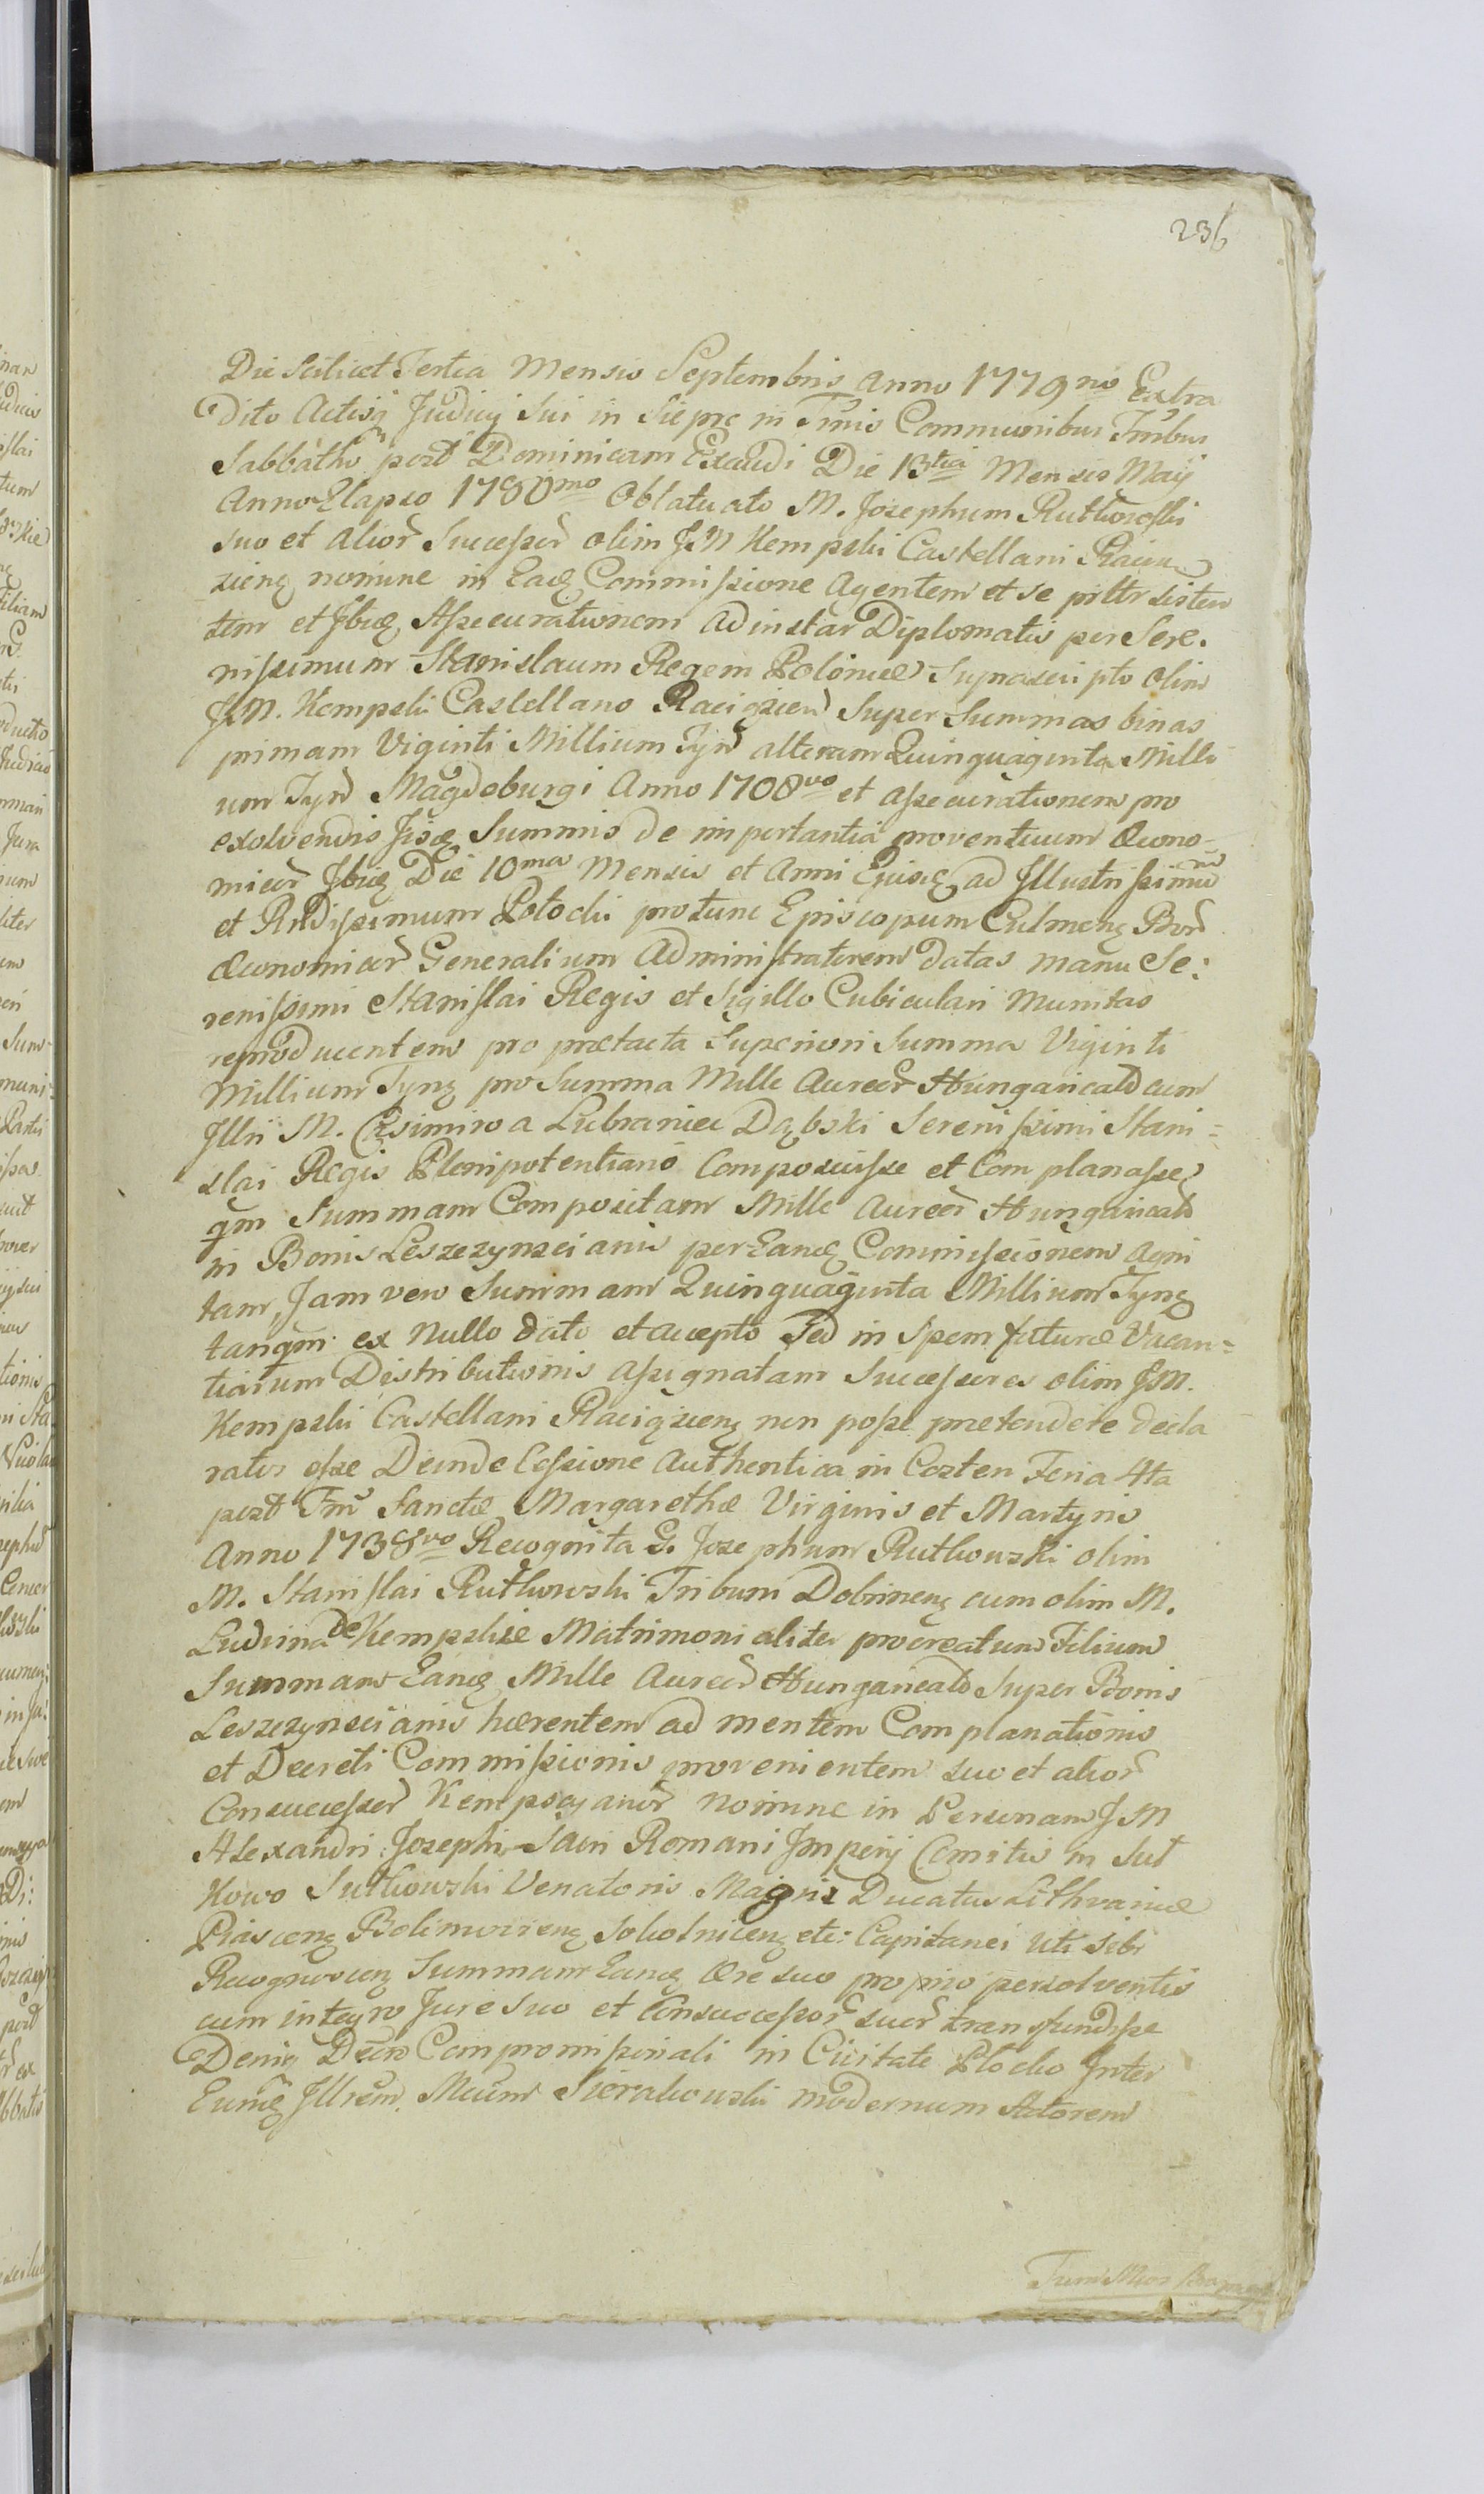 236
Die Scilicet Tertia Mensis Septembris Anno 1779no Extra
dito Actisq Judicij Sui in Sierpc in Tminis Communibus Tmibus
Sabbatho post Dominicam Exaudi Die 13tia Mensis Maij
Anno Elapso 1780mo Oblatu ato M. Josephum Rutkowski
suo et alior Succeßor olim J.M Kempski Castellani Raciąz
zienę nomine in Eadę Commißione Agentem et se prltr sisten
tem et Jbidę Aßecurationem ad instar Diplomatis per Sere.
nißimum Stanislaum Regem Poloniæ Sujnascripto olim
J.M. Kempski Castellano Raciązien Super Summas binas
primam Viginti Millium Tyn alteram Quinquaginta Milli
um Tyn Magdeburgi Anno 1708vo et aßecurationem pro
exolvendis Jisdę Summis de importantia proventuum Œcono-
micar Jbidę Die 10ma Mensis et Anni Ejusdę ad Illustrißimum
et Rndißimum Potocki protunc Episcopum Culmenę Bor
Œconomicar Generalium Administratorem datas manu Se:
renißimi Stanislai Regis et Sigillo Cubiculari Munitas
reproducentem pro prætacta Superiori Summa Viginti
Millium Tynę pro Summa Mille Aureor Hungaricald cum
Jllri M. Casimiro a Lubraniec Dąbski Serenißimi Stani=
slai Regis Plenipotentiario Composuiße et Complanaße
qm Summam Compositam Mille Aureor Hungaricald
in Bonis Leszczynscianis per Eandę Commißionem Agni
tam, Jam vero Summam Quinquaginta Millium Tynę
tanqm ex Nullo dato et accepto Sed in Spem futuræ Vacan=
tiarum Distributionis aßignatam Succeßores olim JM.
Kempski Castellani Raciązienę non poße prætendere decla
ratos eße Deinde Ceßione Authentica in Costen Feria 4ta
post Fm Sanctæ Margarethæ Virginis et Martyris
Anno 1738vo Recognita G. Josephum Rutkowski olim
M. Stanislai Rutkowski Tribuni Dobrinenę cum olim M.
Ludvina de Kempskie Matrimonialiter procreatum Filium
Summam Eandę Mille Aureor Hungaricald Super Bonis
Leszczynscianis hærentem ad mentem Complanationis
et Decreti Commißionis provenientem suo et alior
Consucceßor Kempscyanor nomine in Personam JM
Alexandri Josephi Sacri Romani Imperij Comitis in Sut
kowo Sutkowski Venatoris Magni Ducatus Lithvaniæ
Piascenę Bolimovienę Sokolnicenę etc: Capitanei Uti sibi
Recognoscen Summam Eandę Ære suo proprio persolventis
cum integro Jure Suo et Consucceßor suor transfundiße
Deniq Decro Compromißoriali in Civitate Plocko Inter
Eundę Jllrem Mcum Sierakowski modernum Actorem